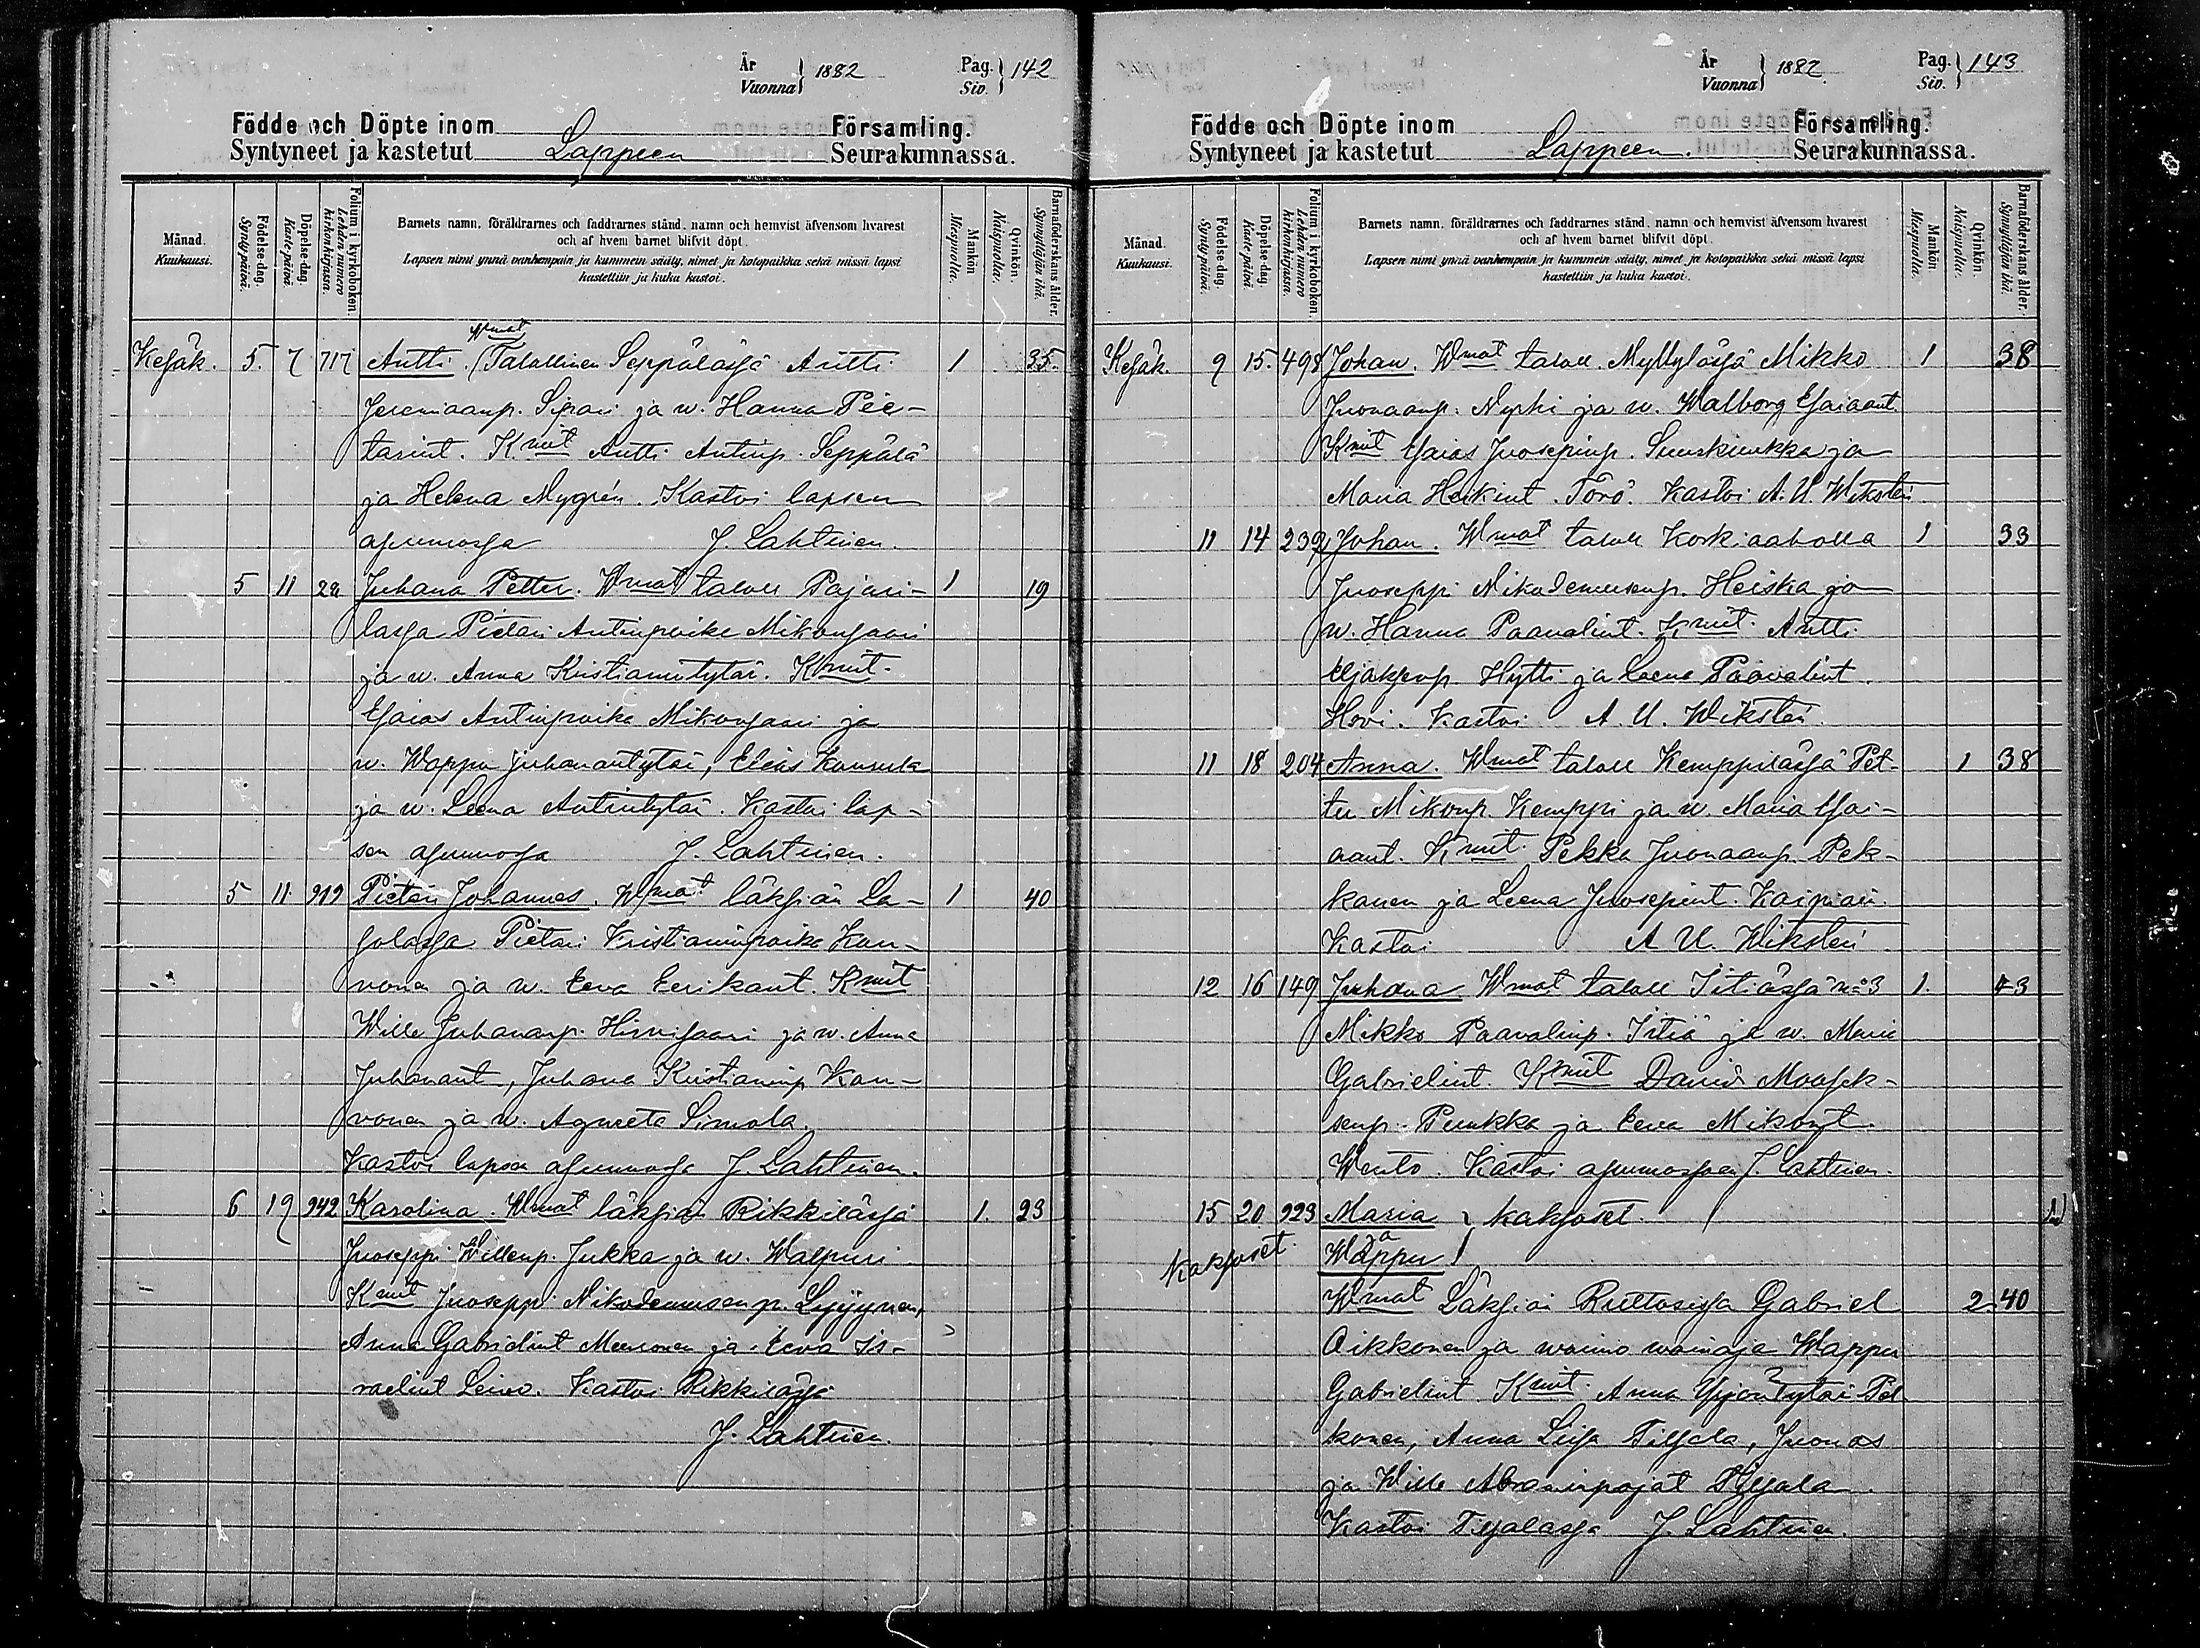 År
Vuonna } 1882
Pag.
Siv. } 142
Födde och Döpte inom Församling.
Syntyneet ja kastetut Lappeen Seurakunnassa.
Månad.
Kuukausi.
Födelse-dag.
Syntypäivä.
Döpelse-dag.
Kaste päivä.
Folium i kyrkoboken.
Lehden numero
kirkonkirjassa.
Barnets namn, föräldrarnes och faddrarnes stånd, namn och hemvist äfvensom hvarest
och af hvem barnet blifvit döpt.
Lapsen nimi ynnä vanhempain ja kummein sääty, nimet ja kotopaikka sekä missä lapsi
kastettiin ja kuka kastoi.
Mankön.
Miespuolia.
Qvinkön.
Naispuolia.
Barnaföderskans ålder.
Synnyttäjän ikä.
Wmat
Kesäk. 5. 7 717 Antti. (Talollinen Seppälässä Antti 1 35.
Jeremiaanp. Sipari ja w. Hanna Pie-
tarint. Kmit Antti Antinp. Seppälä
ja Helena Nygrén. Kastoi lapsen
asunnossa J. Lahtinen.
5 11 Juhana Petter. Wmat taloll Pajari- 1 19
lassa Pietari Antinpoika Mikonsaari
ja w. Anna Kristianintytär. Kmit.
Esaias Antinpoika Mikonsaari ja
w. Wappu Juhanantytär, Elias
ja w. Leena Antintytär. Kastoi lap-
sen asunnossa J. Lahtinen.
5 11. 919 Pietari Johannes. Wmat läksiän La- 1 40
solassa Pietari Kristianinpoika Kan-
vonen ja w. Eeva Eerikant. Kmit
Wille Juhananp. Hirvisaari ja w. Anna
Juhanant, Juhana Kristianinp Kan-
vonen ja w. Agneeta Simola.
Kastoi lapsen asunnossa J. Lahtinen.
6 19 942 Karolina. Wmat läksiän Rikkilässä 1. 23
Juoseppi Willenp. Jukka ja w. Walpuri
Kmit Juoseppi Nikodemusenp. Lyyjynen,
Anna Gabrielint Meuronen ja Eeva Is-
raelint Leino. Kastoi Rikkilässä
J. Lahtinen.
År
Vuonna } 1882.
Pag.
Siv. } 143
Födde och Döpte inom Församling.
Syntyneet ja kastetut Lappeen. Seurakunnassa.
Månad.
Kuukausi.
Födelse-dag.
Syntypäivä.
Döpelse-dag.
Kaste päivä.
Folium i kyrkoboken.
Lehden numero
kirkonkirjassa.
Barnets namn, föräldrarnes och faddrarnes stånd, namn och hemvist äfvensom hvarest
och af hvem barnet blifvit döpt.
Lapsen nimi ynnä vanhempain ja kummein sääty, nimet ja kotopaikka sekä missä lapsi
kastettiin ja kuka kastoi.
Mankön.
Miespuolia.
Qvinkön.
Naispuolia.
Barnaföderskans ålder.
Synnyttäjän ikä.
Kesäk. 9 15. 498 Johan. Wmat taloll. Myllylässä Mikko 1 38
Juonaanp. Nyrhi ja w. Walborg Esaiaant.
Kmit Esaias Juosepinp. Suuskiukka ja
Maria Heikint. Törö. Kastoi A. U. Wikstén
11 14 239 Johan. Wmat taloll Korkiaaholla 1 33
Juoseppi Nikodemusenp. Heiska ja
w. Hanna Paavalint. Kmit. Antti
Eljaksenp. Hytti ja Leena Paavalint.
Hovi. Kastoi A. U. Wikstén.
11 18 204 Anna. Wmat taloll Kemppilässä Pet- 1 38
ter Mikonp. Kemppi ja w. Maria Esai-
aant. Kmit. Pekka Juonaanp. Pek-
kanen ja Leena Juosepint. Kaipiain.
Kastoi A U. Wikstén
12 16 149 Juhana Wmat taloll Itiässä No 3 1. 43
Mikko Paavalinp. Itiä ja w. Maria
Gabrielint. Kmit David Moosek-
senp. Punkka ja Eeva Mikont.
Wento. Kastoi asunnossaan J. Lahtinen.
15 20 923 Maria } kaksoset.
ja
Kaksoset. Wappu
Wmat Läksiän Ruttosissa Gabriel 2. 40
Oikkonen ja waimo wainaja Wappu
Gabrielint. Kmit. Anna Yrjöntytär Pel
konen, Anna Liisa Tiljala, Juonas
ja Wille Abraminpojat Tiljala.
Kastoi Tiljalassa J. Lahtinen.